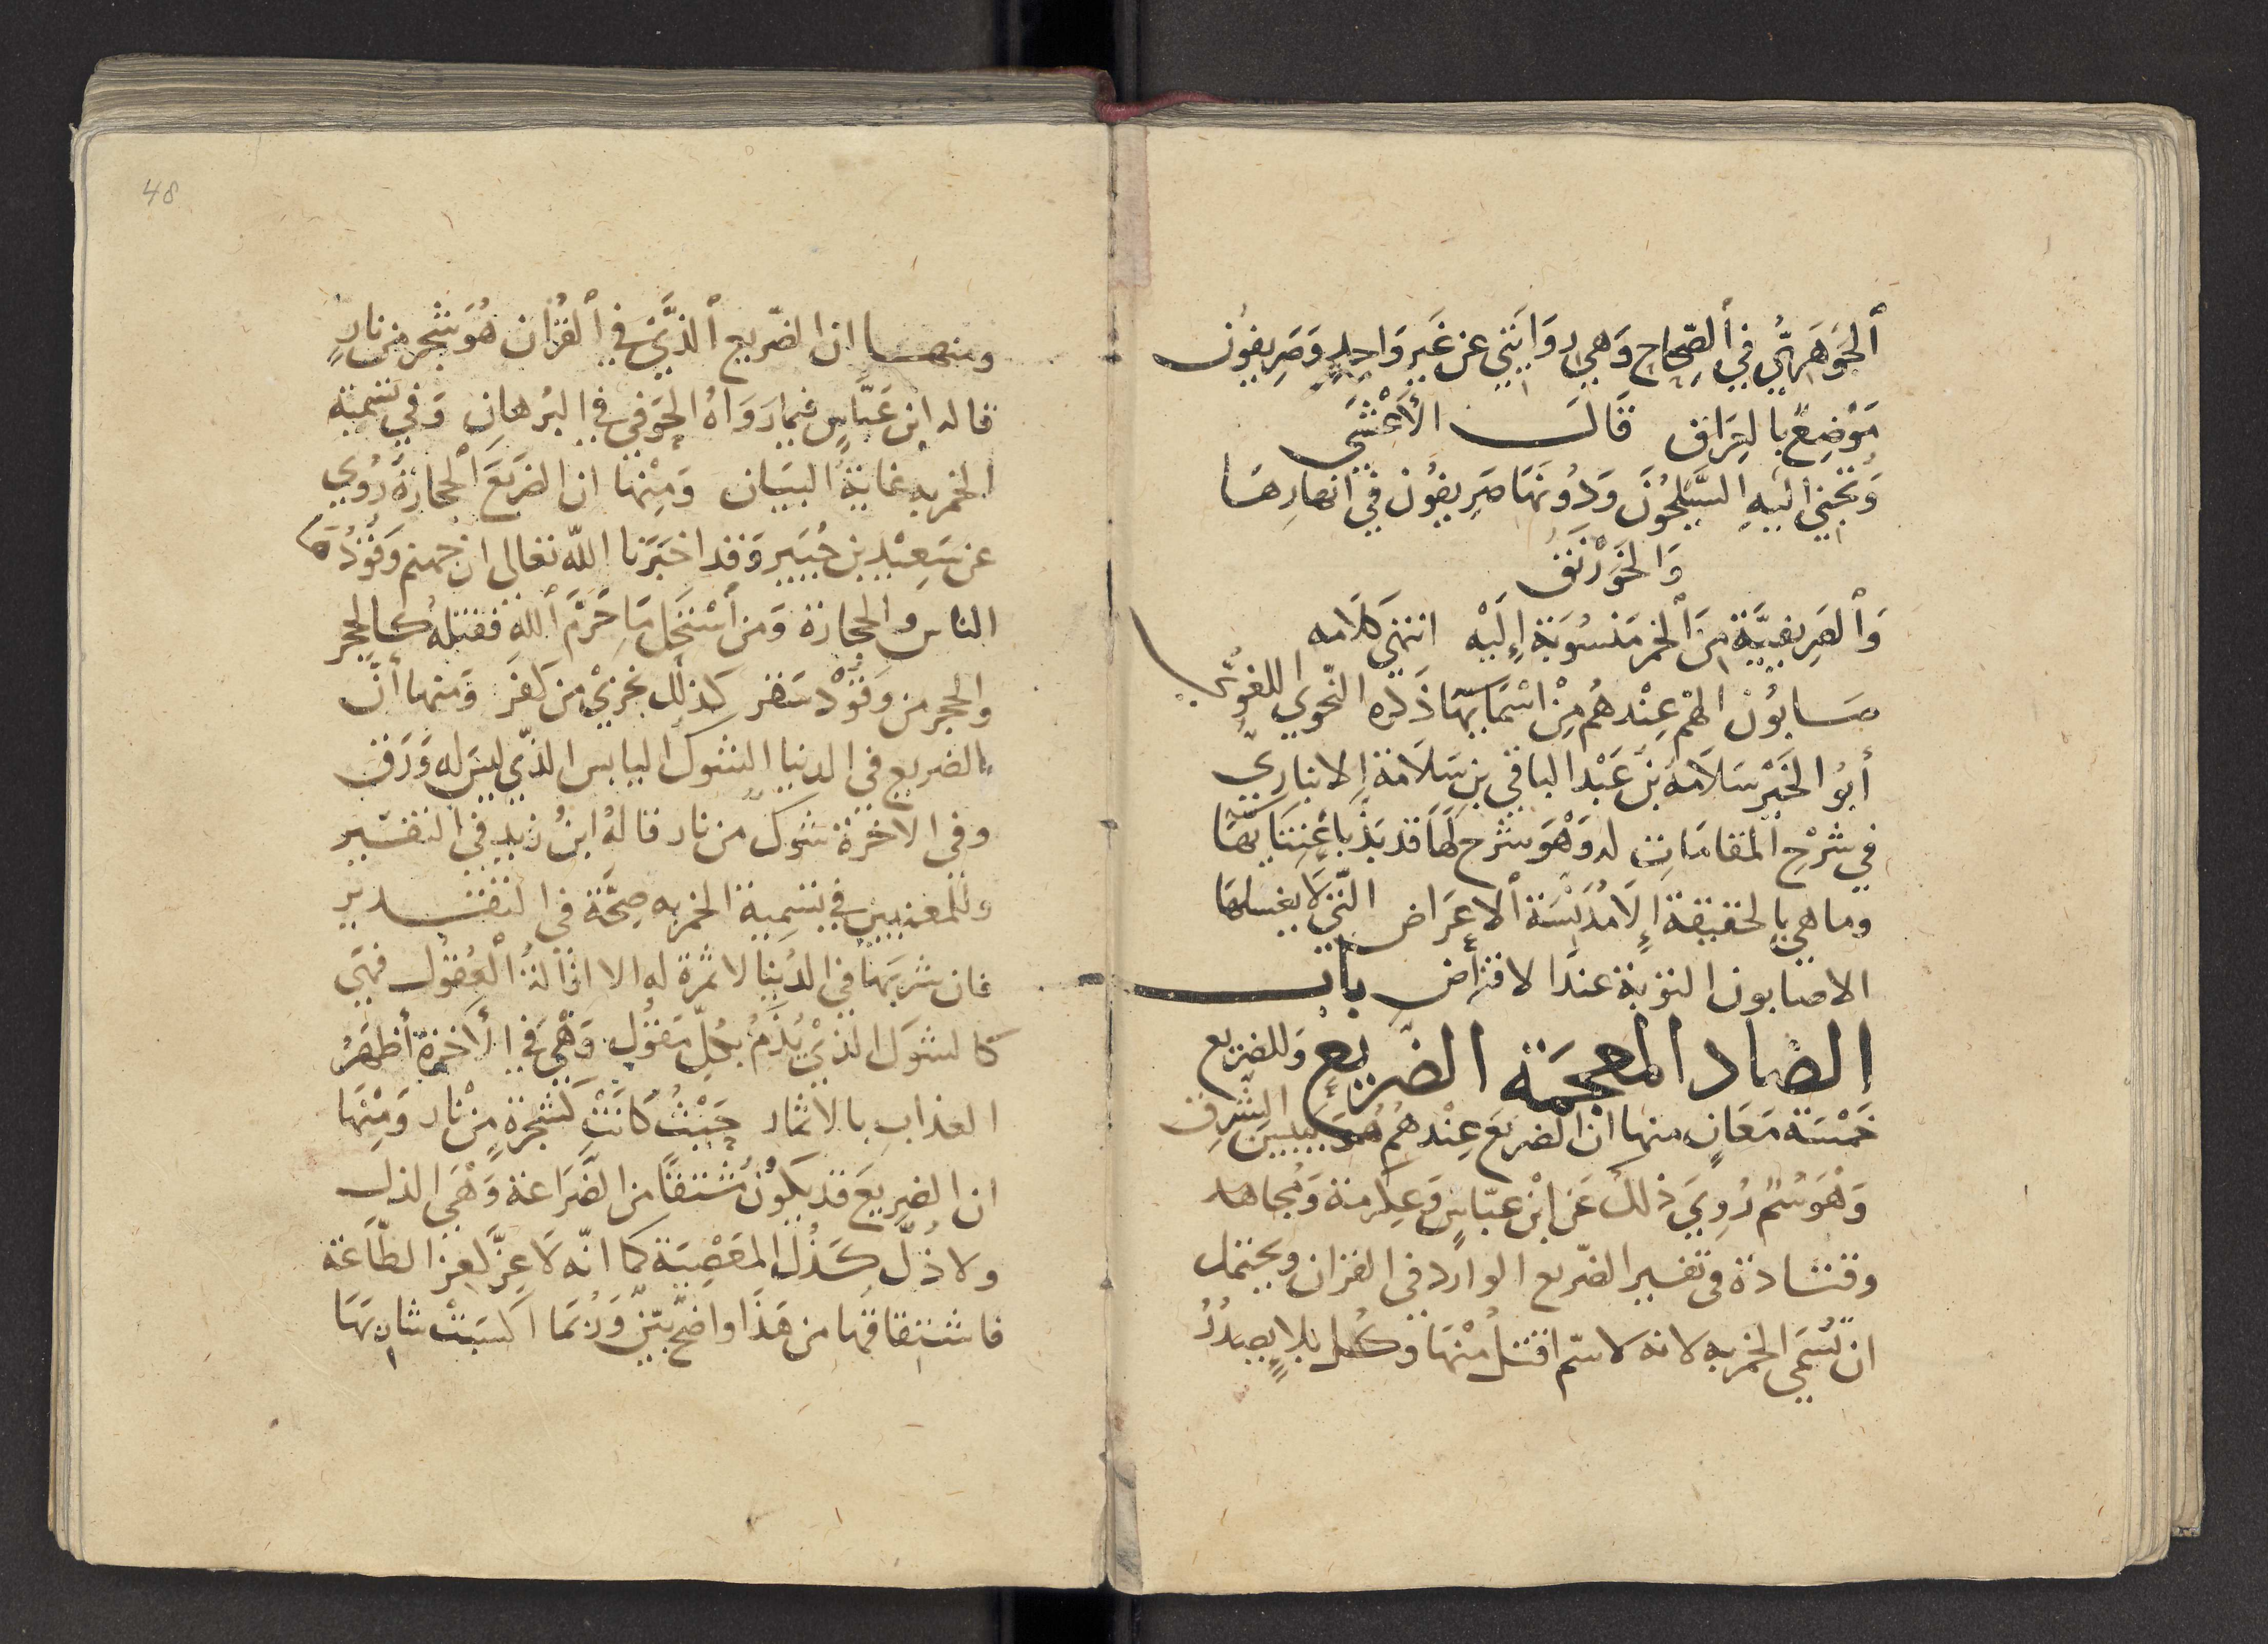 ٱلجَوهَرِيُّ فِي ٱلصِّحَاحِ وَهِيَ رِوَايَتِي عَن غَيرِ وَاحِدٍ وَصَرِيفُون
مَوْضِعٌ بالعِرَاق قَالَ الأَعْشَى
وَتُجْبَى إلَيهِ السَّيْلَحُونَ وَدُونَهَا صَرِيفُونَ فِي أنهارِهَا
وَالخَوَرْنَقُ
وَٱلصَرِيفِيَّة مِنَ ٱلخَمر مَنسُوبَة إِلَيْه انتهى كَلَامه
صَابُون الهم عِنْدهُم مِنْ اسْمَايِهَا ذَكَره النّحوي اللغويّ
أبُو الخَيْر سَلَامَة بنُ عَبْد الباقي بن سَلَامَة الانباريّ
في شَرْحِ المقامَاتِ له وَهْوَ شرح لهَا قد بَذّ باعْتِنَايِهَا
وما هي بالحقيقة إلَّا مُدَنِّسَة ٱلاعرَاض الّتي لَا يغسلها
الاصابون التوبة عند الافتراض بَاب
الضاد المعجمَة الضريع وَللضريع
خَمْسَة مَعَانٍ منها ان الضريع عِنْدهُم هُوَ يبيس الشّبرِق
وَهْوَ سُمٌّ رُوِيَ ذلك عَن ابْنِ عبّاسٍ وَعِكرمة وَمُجاهد
وقتَادة في تفسير الضّريع الوارد في القرآن ويحتمل
ان تُسَمَّى الخمر به لانه لا سمّ اقتل مِنْهَا وَكل بلاءٍ يصدُرُ
48
ومنهَا ان الضّريع ٱلذَّي في ٱلقُرْآن هُوَ شجر من نارٍ
قاله ابن عَبَّاسٍ فيما رَوَاهُ الحَوفي في البُرهان وَفي تسمية
الخمر به غاية البيَان وَمِنْهَا ان الضريعَ ٱلحجارَة رُوي
عن سَعِيْد بن جُبَير وَقد اخبَرَنا اللّه تعالى ان جهنم وَقُوْدُهَا
الناس والحجارة وَمن ٱسْتَحَلَّ مَا حَرَّمَ ٱلله فقتله كالحجر
والحجر من وَقُوْد سَقر كذلك نجزيْ من كَفَر وَمنها أنّ
الضريع في الدنيا الشوك اليابس الذّي ليسَ له وَرَق
وفي الاخرة شوك من نار قالهُ ابنُ زيد في التفسير
وللمعنيين في تسمية الخمر به صِحَّة في التقدير
فان شربهَا في الدُنيا لا ثمرة له الا ازالة ٱلعُقول فهي
كالشوك الذيْ يُذَمُّ بكلّ مَقُوْل وَهْيَ في الأخرة أظهَرُ
العذاب بالاثمار حَيْثُ كَانَتْ كشجرةٍ مِنْ نار وَمِنْهَا
ان الضريعَ قد يكُونُ مُشتقًّا من الضّرَاعة وَهْيَ الذل
ولا ذُلّ كَذُلّ المعَصْيَة كما انّه لَا عِزَّ لعز الطّاعَة
فاشتقاقها من هَذَا واضحٌ بيّنٌ وَرُبَمَا اكسَبَتْ شَاربهَا